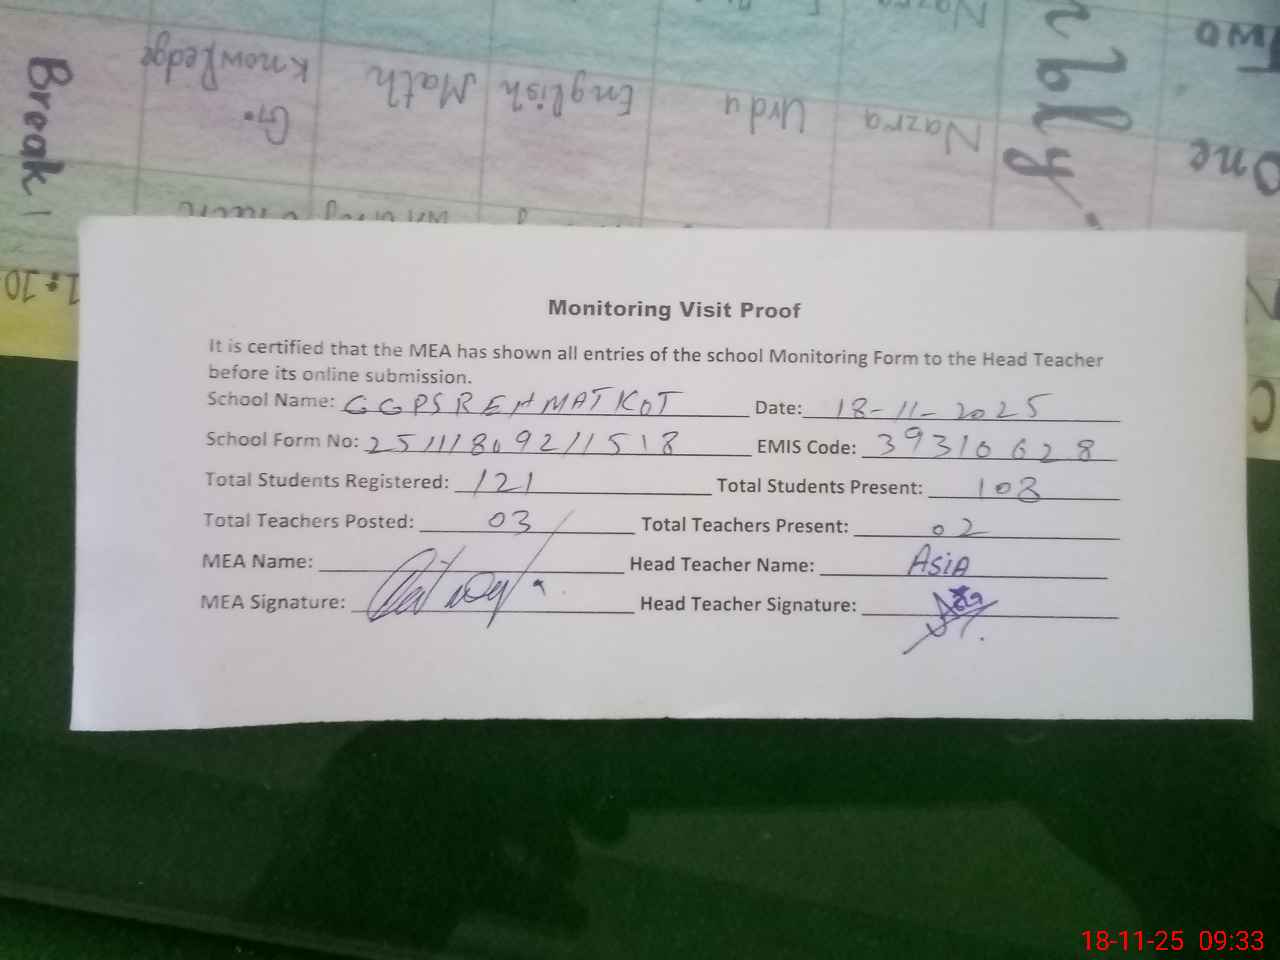 Two
Nazra
One
bly
Nazra
Urdu
English
Math
G.
Knowledge
Break
1:10
Monitoring Visit Proof
It is certified that the MEA has shown all entries of the school Monitoring Form to the Head Teacher
before its online submission.
School Name: GGPS REHMAT KOT Date: 18-11-2025
School Form No: 25111809211518 EMIS Code: 39310628
Total Students Registered: 121 Total Students Present: 108
Total Teachers Posted: 03 Total Teachers Present: 02
MEA Name: Head Teacher Name: ASiA
MEA Signature: Head Teacher Signature:
18-11-25 09:33